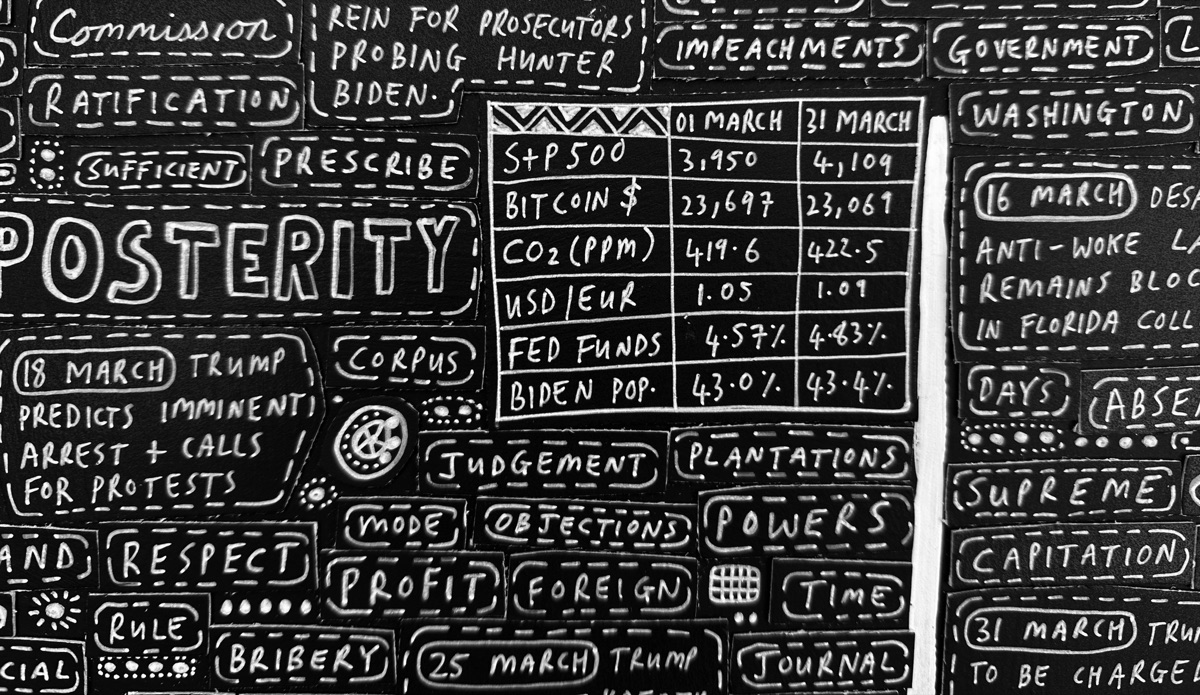 Commission
RATIFICATION
REIN FOR PROSECUTORS
PROBING HUNTER
BIDEN.
IMPEACHMENTS
GOVERNMENT
WASHINGTON
SUFFICIENT
PRESCRIBE
POSTERITY
01 MARCH 31 MARCH
S+P 500 3,950 4,109
BITCOIN $ 23,697 23,069
CO2 (PPM) 419.6 422.5
USD/EUR 1.05 1.09
FED FUNDS 4.57% 4.83%
BIDEN POP. 43.0% 43.4%
16 MARCH DESA
ANTI-WOKE LA
REMAINS BLOC
IN FLORIDA COLL
18 MARCH TRUMP
PREDICTS IMMINENT
ARREST + CALLS
FOR PROTESTS
CORPUS
DAYS
ABSE
JUDGEMENT
PLANTATIONS
SUPREME
MODE
OBJECTIONS
POWERS
AND
RESPECT
PROFIT
FOREIGN
TIME
CAPITATION
RULE
CIAL
BRIBERY
25 MARCH TRUMP
JOURNAL
31 MARCH TRU
TO BE CHARGE